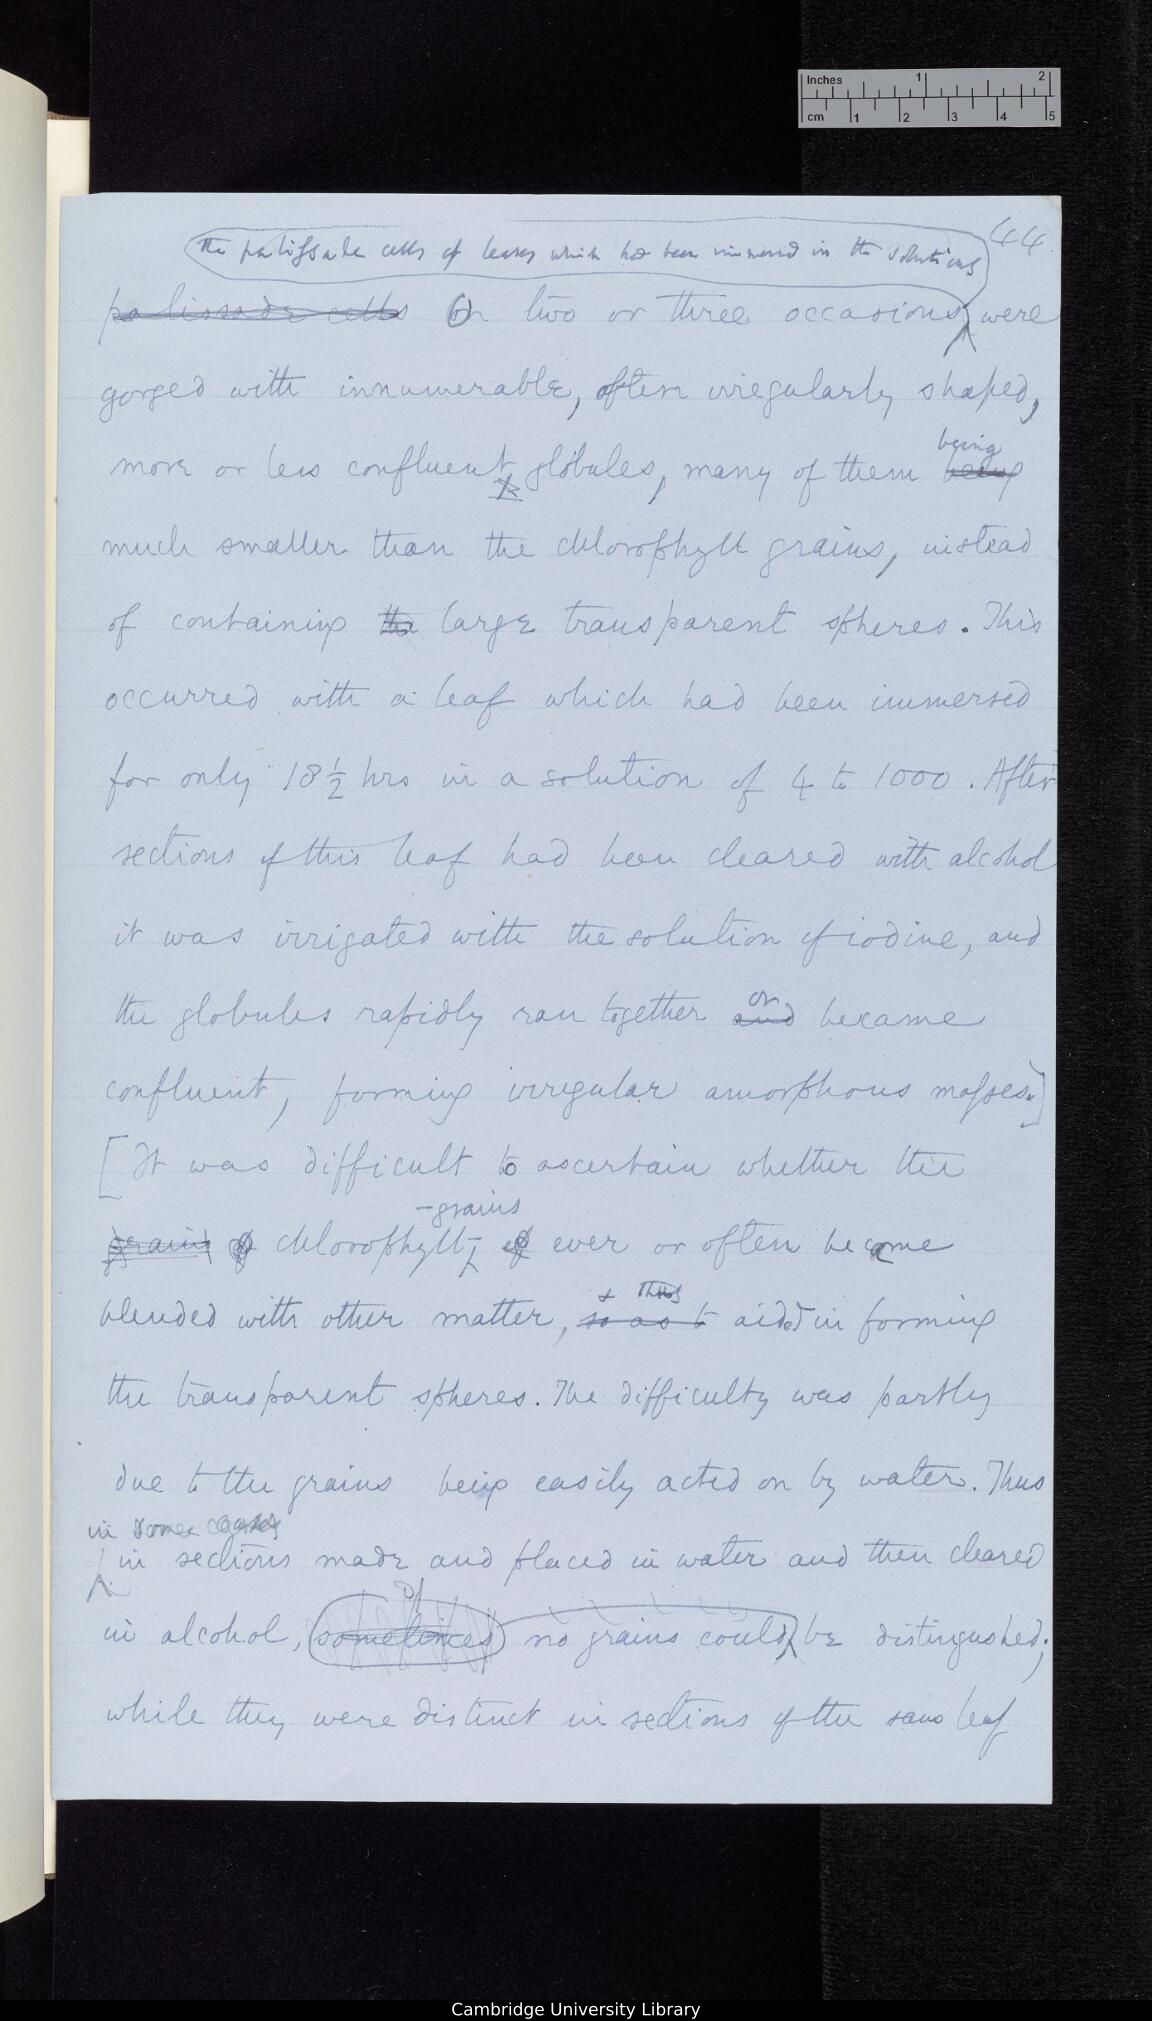 Inches 1 2
cm 1 2 3 4 5
44
the palissade cells of leaves which had been immersed in the solutions
palissade cells On two or three occasions were
gorged with innumerable, often irregularly shaped,
being
more or less confluent globules, many of them being
much smaller than the chlorophyll grains, instead
of containing the large transparent spheres. This
occurred with a leaf which had been immersed
for only 18 1/2 hrs in a solution of 4 to 1000. After
sections of this leaf had been cleared with alcohol
it was irrigated with the solution of iodine, and
or
the globules rapidly ran together and became
confluent, forming irregular amorphous masses.]
[It was difficult to ascertain whether the
-grains
grains of chlorophyll- ever or often become
& thus
blended with other matter, so as to aided in forming
the transparent spheres. The difficulty was partly
due to the grains being easily acted on by water. Thus
in some cases
in sections made and placed in water and then cleared
in alcohol, sometimes no grains could be distinguished;
while they were distinct in sections of the same leaf
Cambridge University Library